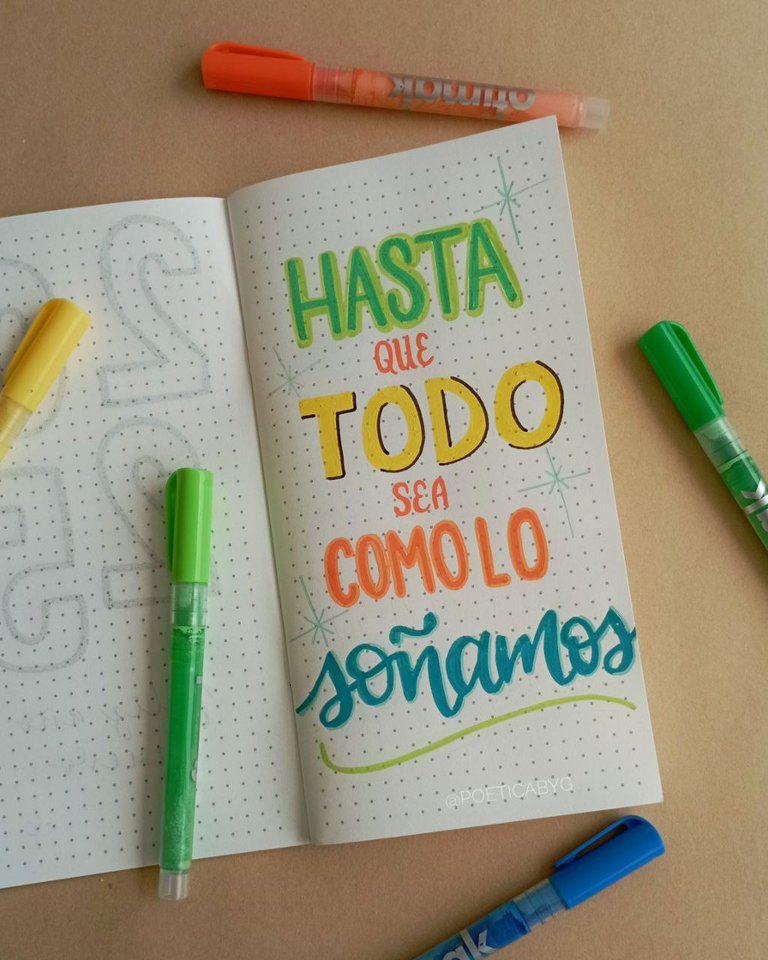 otimak
HASTA
QUE
TODO
SEA
COMO LO
soñamos
@POETICABYG
ak